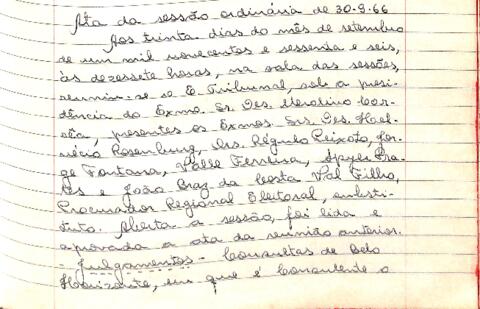 Ata da sessão ordinária de 30-9-66
Aos trinta dias do mês de setembro
de um mil novecentos e sessenta e seis,
às dezessete horas, na sala das sessões,
reuniu-se o E. Tribunal, sob a presi-
dência do Exmo. Sr. Des. Merolino Cor-
rêa, presentes os Exmos. Srs. Des. Hel-
vécio Rosenburg, Drs. Régulo Peixoto, Jor-
ge Fontana, Valle Ferreira, Apyles Pra-
tes e João Braz da Costa Val Filho,
Procurador Regional Eleitoral, substi-
tuto. Aberta a sessão, foi lida e
aprovada a ata da reunião anterior.
- Julgamentos - Consultas de Belo
Horizonte, em que é Consulente o